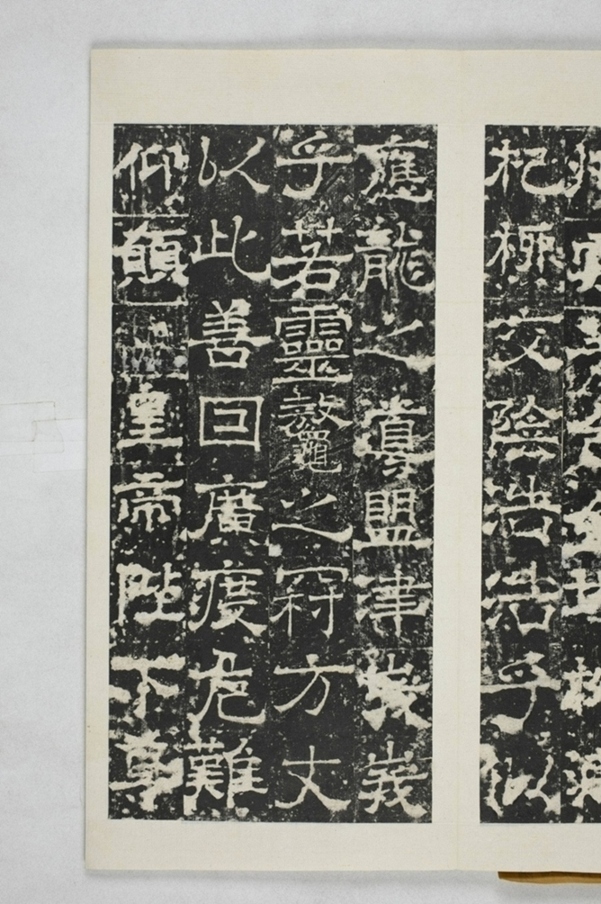 杞柳交陰浩浩乎似
應龍之導盟津峩峩
乎若靈鼇之冠方丈
以此善回廣度危難
仰願皇帝陛下尊